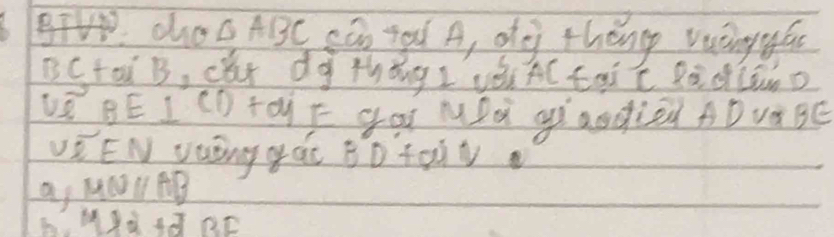 BTVN. cho Δ ABC cân tại A, đg thẳng vuông góc
BC tại B, cắt đg thẳng ⊥ với AC tại C là điểm D
vẽ BE ⊥ CD tại E gọi M là giaodiểm AD và BE
vẽ EN vuông góc BD tại N
a, MN // AB
b, M là tđ BE